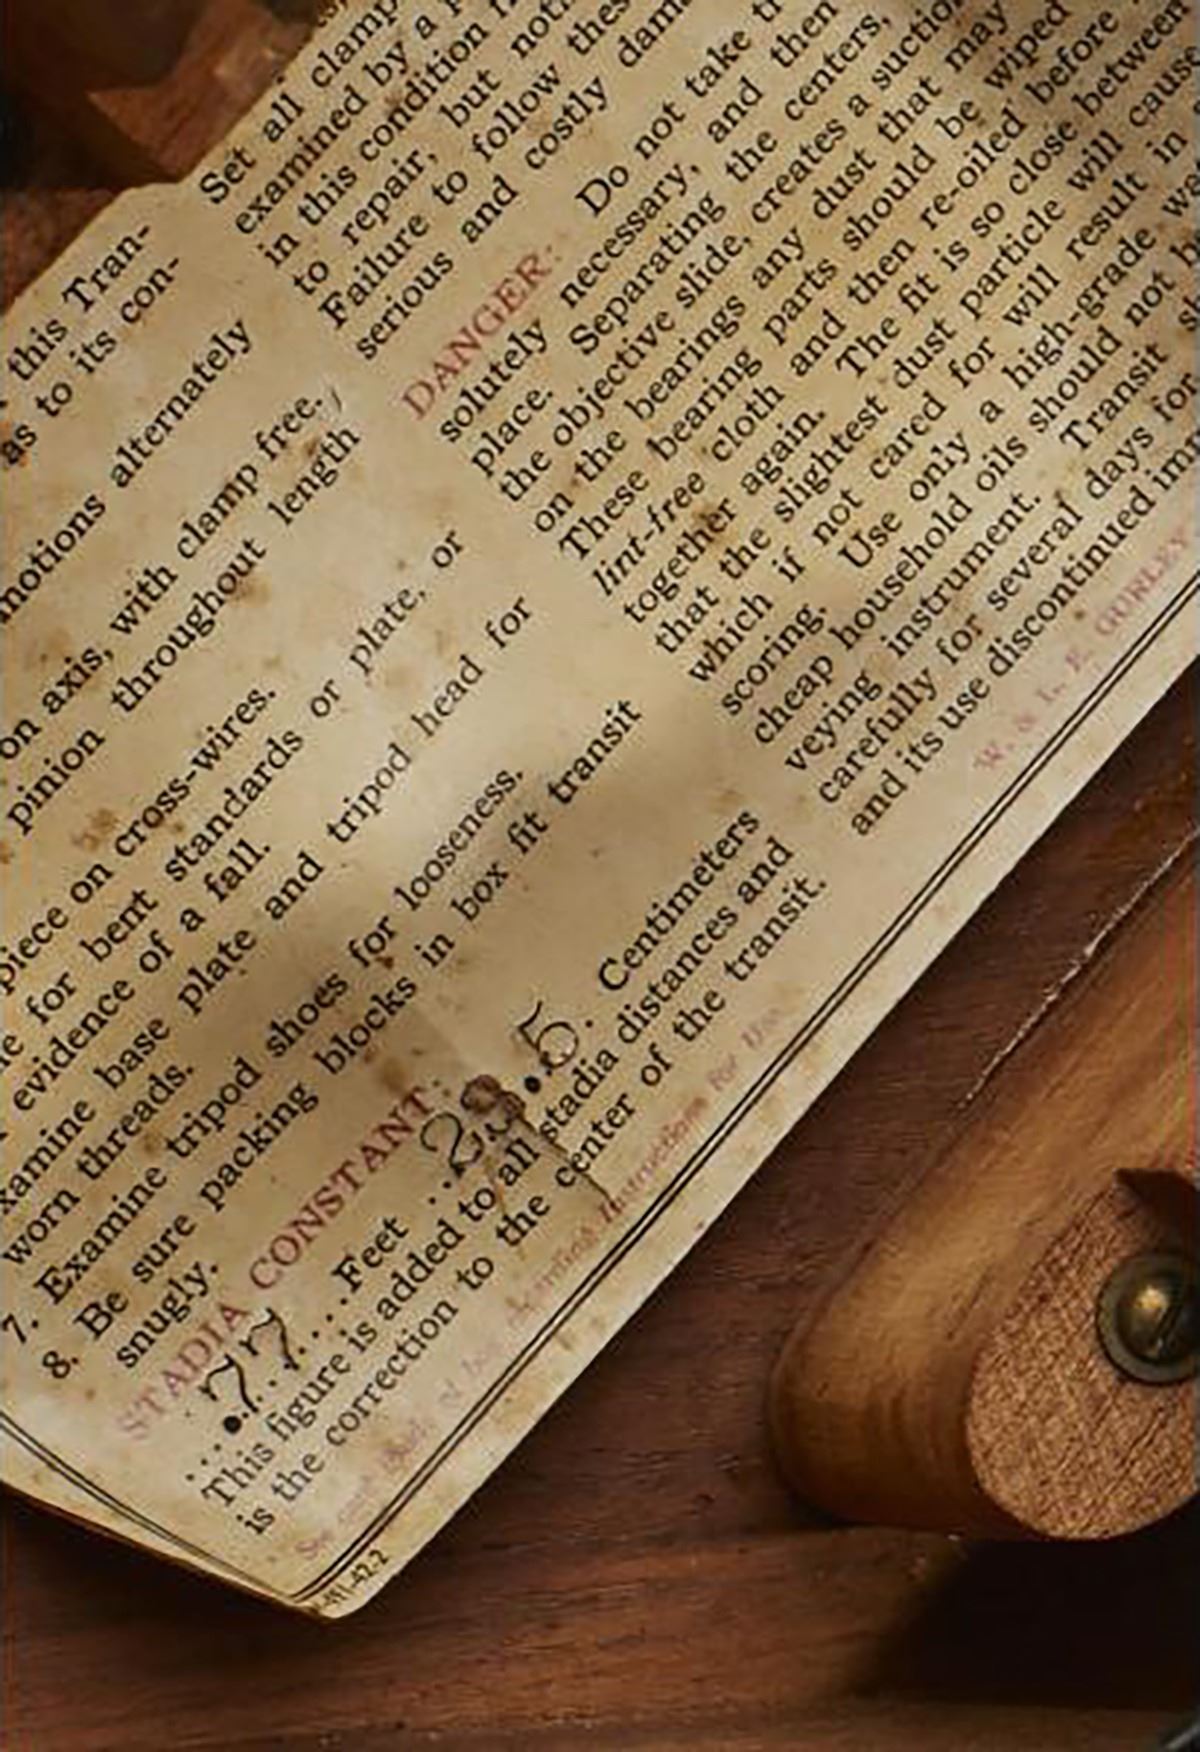 this Tran-
as to its con-
motions alternately
on axis, with clamp free.
pinion throughout length
piece on cross-wires.
for bent standards or plate, or
evidence of a fall.
examine base plate and tripod head for
worn threads.
7. Examine tripod shoes for looseness.
8. Be sure packing blocks in box fit transit
snugly.
STADIA CONSTANT:
....77....Feet ..23.5. Centimeters
This figure is added to all stadia distances and
is the correction to the center of the transit.
Set all clamp
examined by a
in this condition
to repair, but not
Failure to follow thes
serious and costly dam
DANGER: Do not take
solutely necessary, and then
place. Separating the centers,
the objective slide, creates a suction
on the bearings any dust that may
These bearing parts should be wiped
lint-free cloth and then re-oiled before
together again. The fit is so close between
that the slightest dust particle will cause
which if not cared for will result in
scoring. Use only a high-grade wa
cheap household oils should not b
veying instrument. Transit s
carefully for several days for
and its use discontinued imm
W. & L. E. GURLEY
Instruction for Use
-411-42-2